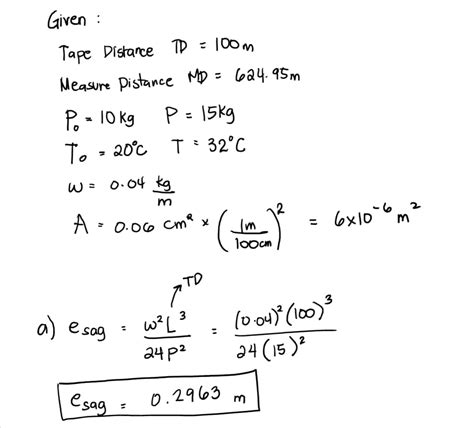 Given :
Tape Distance TD = 100m
Measure Distance MD = 624.95m
P₀ = 10kg P = 15kg
T₀ = 20°C T = 32°C
w = 0.04 kg/m
A = 0.06 cm² × (1m/100cm)² = 6×10⁻⁶ m²
TD
a) e sag = w²L³/24P² = (0.04)²(100)³/24(15)²
e sag = 0.2963 m